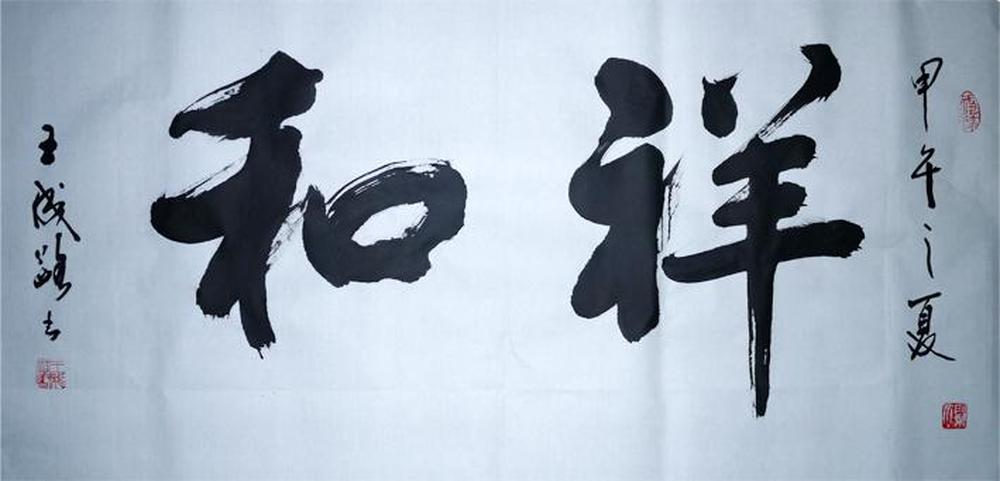 甲午之夏
祥和
王成路书